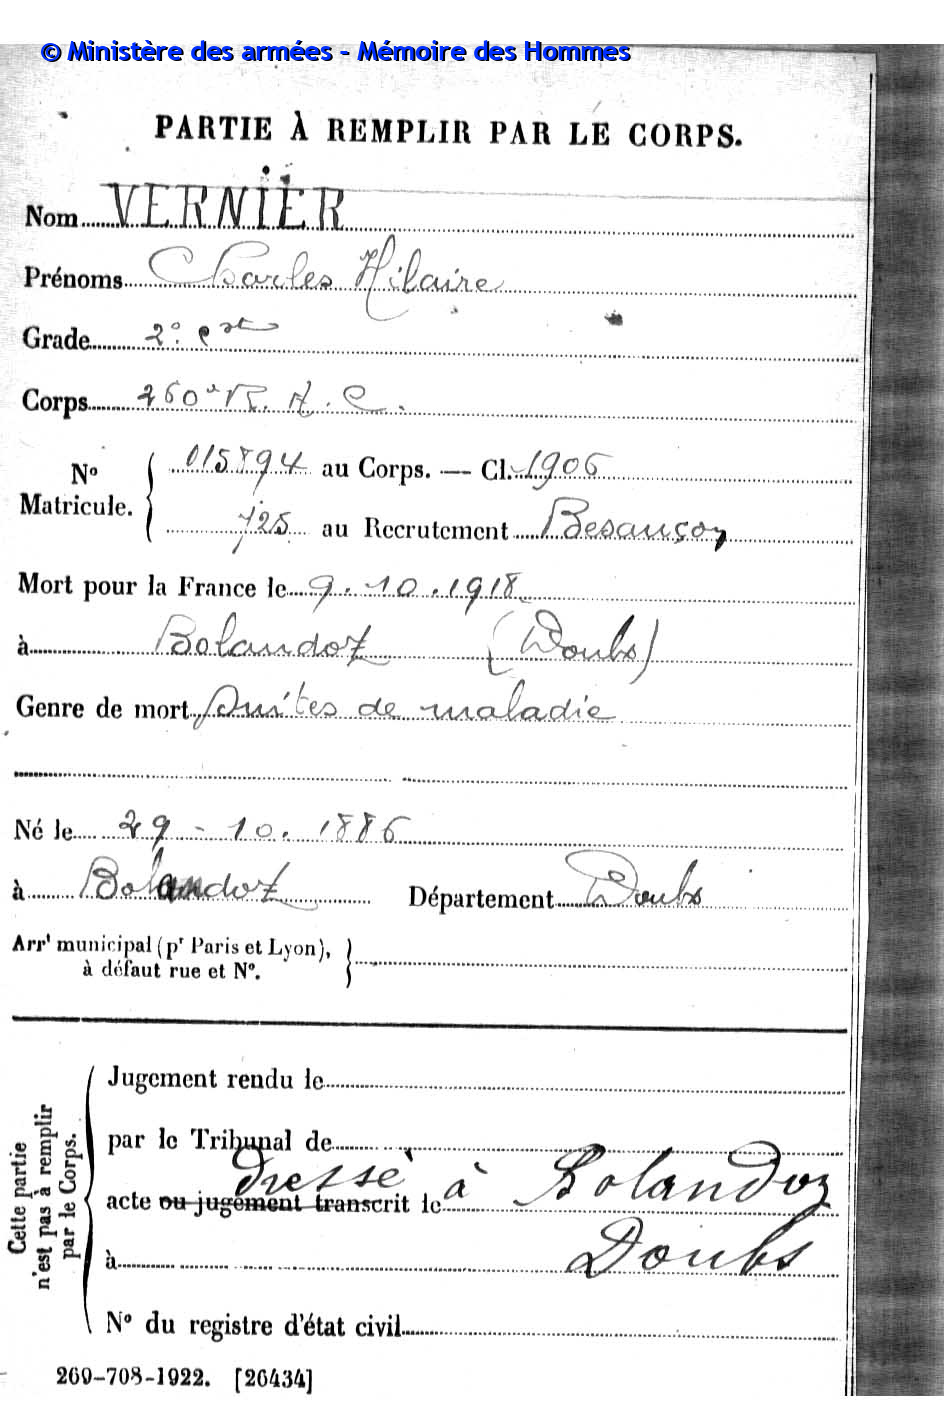 © Ministère des armées - Mémoire des Hommes
PARTIE À REMPLIR PAR LE CORPS.
Nom VERNIER
Prénoms Charles Hilaire
Grade 2e
Corps 260e R. A. C.
No Matricule. 015894 au Corps. — Cl. 1906
725 au Recrutement Besançon
Mort pour la France le 9.10.1918
à Bolandoz (Doubs)
Genre de mort suites de maladie
Né le 29-10.1886
à Bolandoz Département Doubs
Arrt municipal (pr Paris et Lyon),
à défaut rue et No.
Cette partie
n'est pas à remplir
par le Corps.
Jugement rendu le
par le Tribunal de
dressé
acte ou jugement transcrit le à Bolandoz
à Doubs
No du registre d'état civil
269-708-1922. [26434]